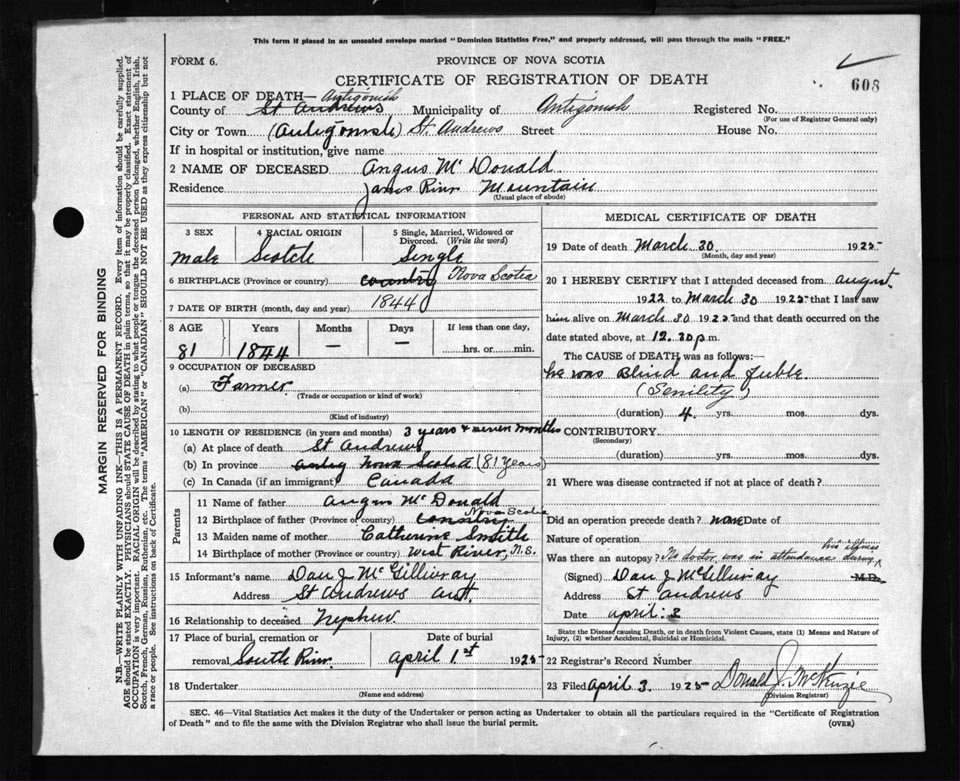 This form if placed in an unsealed envelope marked "Dominion Statistics Free," and properly addressed, will pass through the mails "FREE."
FORM 6.
PROVINCE OF NOVA SCOTIA
608
CERTIFICATE OF REGISTRATION OF DEATH
1 PLACE OF DEATH— Antigonish
County of St Andrews Municipality of Antigonish Registered No.
(For use of Registrar General only)
City or Town (Antigonish) St. Andrews Street House No.
If in hospital or institution, give name
2 NAME OF DECEASED Angus Mc Donald
Residence James River Mountain
(Usual place of abode)
PERSONAL AND STATISTICAL INFORMATION
3 SEX 4 RACIAL ORIGIN 5 Single, Married, Widowed or Divorced. (Write the word)
male Scotch Single
6 BIRTHPLACE (Province or country) country Nova Scotia
7 DATE OF BIRTH (month, day and year) 1844
8 AGE Years Months Days If less than one day,
81 1844 — — hrs. or min.
9 OCCUPATION OF DECEASED
(a) Farmer
(Trade or occupation or kind of work)
(b)
(Kind of industry)
10 LENGTH OF RESIDENCE (in years and months) 3 years & seven months
(a) At place of death St Andrews
(b) In province Nova Scotia (81 years)
(c) In Canada (if an immigrant) Canada
Parents
11 Name of father Angus Mc Donald
12 Birthplace of father (Province or country) country Nova Scotia
13 Maiden name of mother Catherine Smith
14 Birthplace of mother (Province or country) West River, N.S.
15 Informant's name Dan J McGillivray
Address St Andrews Ant.
16 Relationship to deceased Nephew
17 Place of burial, cremation or removal South River Date of burial April 1st 1925
18 Undertaker
(Name and address)
MEDICAL CERTIFICATE OF DEATH
19 Date of death March 30 1925
(Month, day and year)
20 I HEREBY CERTIFY that I attended deceased from august
1922 to March 30 1925 that I last saw
him alive on March 30 1925 and that death occurred on the
date stated above, at 12.30 p.m.
The CAUSE OF DEATH was as follows:—
he was Blind and feeble.
(Senility)
(duration) 4 yrs. mos. dys.
CONTRIBUTORY
(Secondary)
(duration) yrs. mos. dys.
21 Where was disease contracted if not at place of death?
Did an operation precede death? none Date of
Nature of operation
Was there an autopsy? No doctor was in attendance during his illness
(Signed) Dan J McGillivray M.D.
Address St Andrews
Date april 2
State the Disease causing Death, or in death from Violent Causes, state (1) Means and Nature of Injury, (2) whether Accidental, Suicidal or Homicidal.
22 Registrar's Record Number
23 Filed April 3 1925 Donald J. McKenzie
(Division Registrar)
SEC. 46—Vital Statistics Act makes it the duty of the Undertaker or person acting as Undertaker to obtain all the particulars required in the "Certificate of Registration
of Death" and to file the same with the Division Registrar who shall issue the burial permit.
(OVER)
MARGIN RESERVED FOR BINDING
N.B.—WRITE PLAINLY WITH UNFADING INK—THIS IS A PERMANENT RECORD. Every item of information should be carefully supplied.
AGE should be stated EXACTLY. PHYSICIANS should STATE CAUSE OF DEATH in plain terms, so that it may be properly classified. Exact statement of
OCCUPATION is very important. RACIAL ORIGIN will be described by stating to what people or tongue the deceased person belonged, whether English, Irish,
Scotch, French, German, Russian, Ruthenian, etc. The terms "AMERICAN" or "CANADIAN" SHOULD NOT BE USED as they express citizenship but not
a race or people. See instructions on back of Certificate.